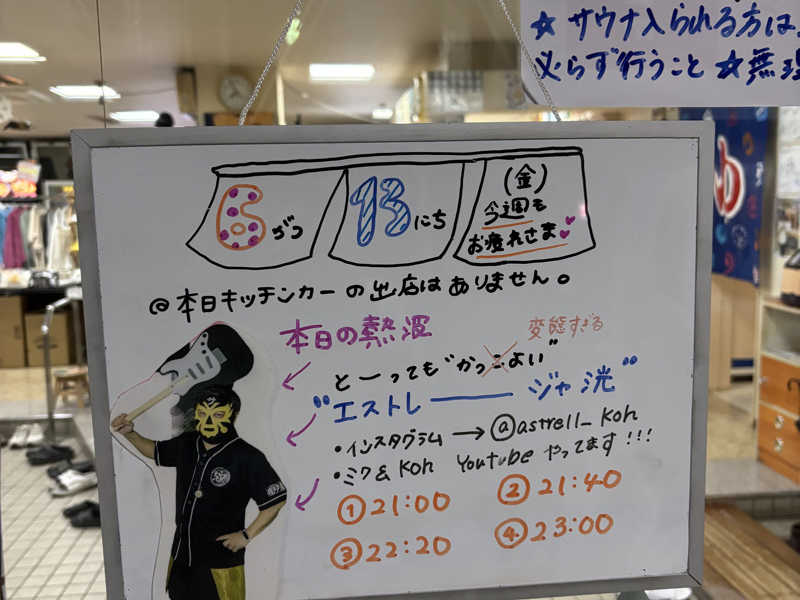 ★サウナ入られる方は
必らず行うこと★無
6がつ
13にち
(金)
今週も
お疲れさま
@本日キッチンカーの出店はありません。
本日の熱波
変態すぎる
とーっても"かっこよい"
"エストレ―ジャ洸"
・インスタグラム→@astrell_koh
・ミク&Koh Youtubeやってます!!!
①21:00
②21:40
③22:20
④23:00